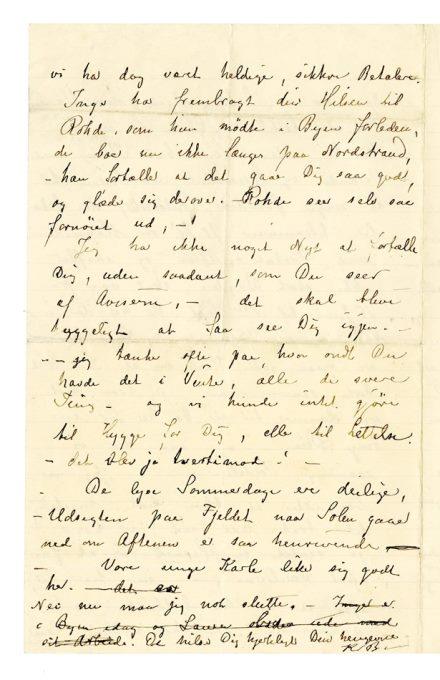 vi har dog været heldige, sikkre Betalere.
Inger har frembragt din Hilsen til
Rohde, som hun mödte i Byen forleden,
de boer nu ikke længer paa Nordstrand,
- han fortæller at det gaar Dig saa godt,
og glæder sig derover. - Rohde seer selv saa
fornöiet ud, - !
Jeg har ikke noget Nyt at fortælle
Dig, uden saadant, som Du seer
af Aviserne, - det skal blive
hyggeligt at faa see Dig igjen. -
- - jeg tænkte ofte paa, hvor ondt Du
havde det i Vinter, alle de svere
Ting - og vi kunde intet gjöre
til Hygge for Dig, eller til Lettelse.
- det blev jo tvertimod ! -
- De lyse Sommerdage ere deilige,
- Udsigten paa Fjeldet naar Solen gaaer
ned om Aftenen er saa henrivende
- Vore unge Karle liker sig godt
her. - det er
Nei nu maa jeg nok slutte. - Inger er
i Byen idag og Laura ude med
sit Arbeide. De hilser Dig hjerteligst Din hengivne